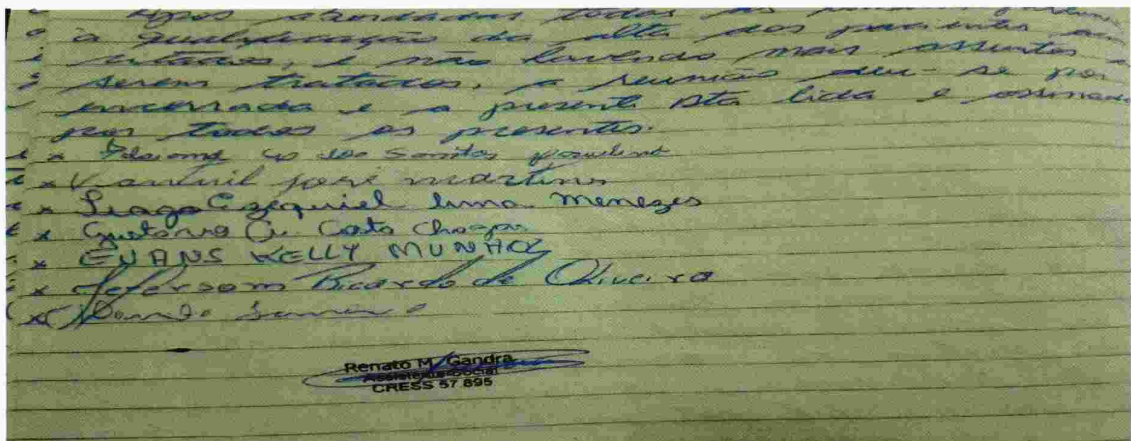 após abordadas todos os
a qualificação da alta dos pacientes
, e não havendo mais assuntos a
serem tratados, a reunião deu-se por
encerrada e a presente Ata lida e assinada
por todos os presentes.
x dos Santos
x Vantuil José martins
x Tiago Ezequiel Lima Menezes
x Gustavo Costa Chagas
x EVANS KELLY MUNHOZ
x Jeferson Ricardo de Oliveira
x
Renato M. Gandra
Assistente Social
CRESS 57 895